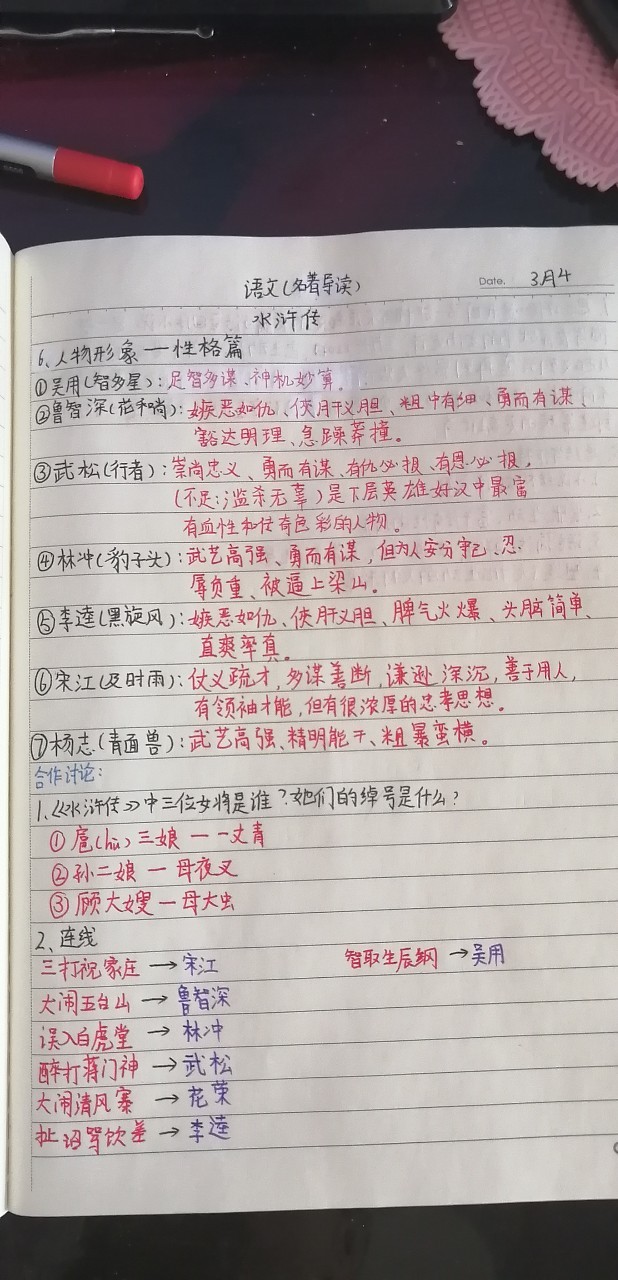 语文(名著导读)
Date. 3月4
水浒传
6、人物形象一性格篇
①吴用(智多星):足智多谋、神机妙算。
②鲁智深(花和尚):嫉恶如仇、侠肝义胆、粗中有细、勇而有谋、
豁达明理、急躁莽撞。
③武松(行者):崇尚忠义、勇而有谋、有仇必报、有恩必报,
(不足:滥杀无辜)是下层英雄好汉中最富
有血性和传奇色彩的人物。
④林冲(豹子头):武艺高强、勇而有谋,但为人安分守己、忍
辱负重、被逼上梁山。
⑤李逵(黑旋风):嫉恶如仇、侠肝义胆、脾气火爆、头脑简单、
直爽率真。
⑥宋江(及时雨):仗义疏才,多谋善断,谦逊深沉,善于用人,
有领袖才能,但有很浓厚的忠孝思想。
⑦杨志(青面兽):武艺高强、精明能干、粗暴蛮横。
合作讨论:
1、《水浒传》中三位女将是谁?她们的绰号是什么?
①扈(hù)三娘一一丈青
②孙二娘一母夜叉
③顾大嫂一母大虫
2、连线
三打祝家庄→宋江
智取生辰纲→吴用
大闹五台山→鲁智深
误入白虎堂→林冲
醉打蒋门神→武松
大闹清风寨→花荣
扯诏骂饮差→李逵